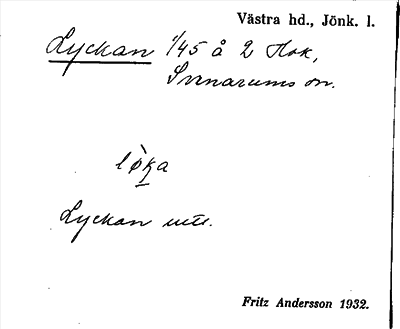 Västra hd., Jönk. l.
Lyckan 1/45 å 2 Hok,
Svenarums sn.
Lyckan
Fritz Andersson 1932.